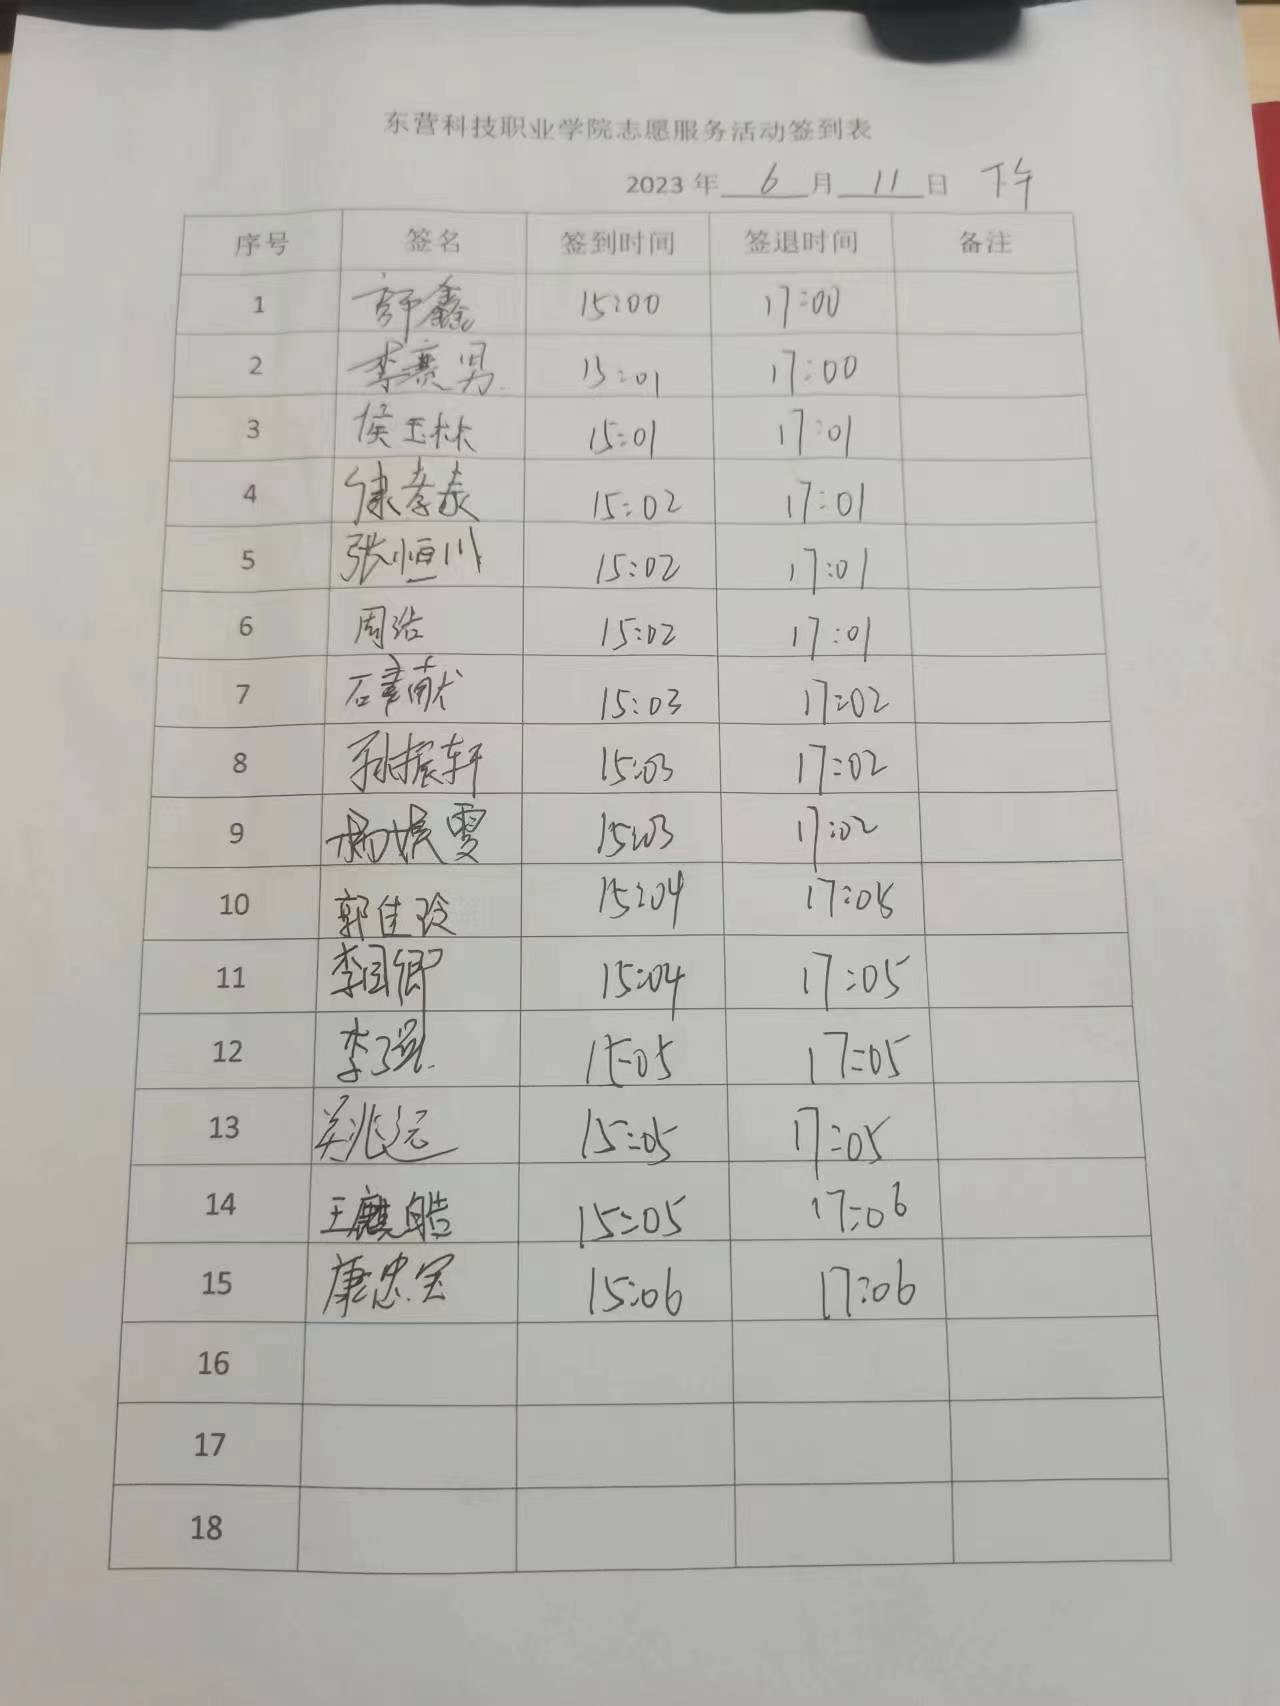 东营科技职业学院志愿服务活动签到表
2023 年 6 月 11 日 下午
序号 签名 签到时间 签退时间 备注
1 鑫 15:00 17:00
2 李赛男 15:01 17:00
3 侯玉林 15:01 17:01
4 15:02 17:01
5 张恒川 15:02 17:01
6 周浩 15:02 17:01
7 石献 15:03 17:02
8 孙振轩 15:03 17:02
9 杨雯 15:03 17:02
10 郭佳玲 15:04 17:05
11 李国卿 15:04 17:05
12 李强 15:05 17:05
13 吴兆远 15:05 17:05
14 王麒皓 15:05 17:06
15 康忠宝 15:06 17:06
16
17
18